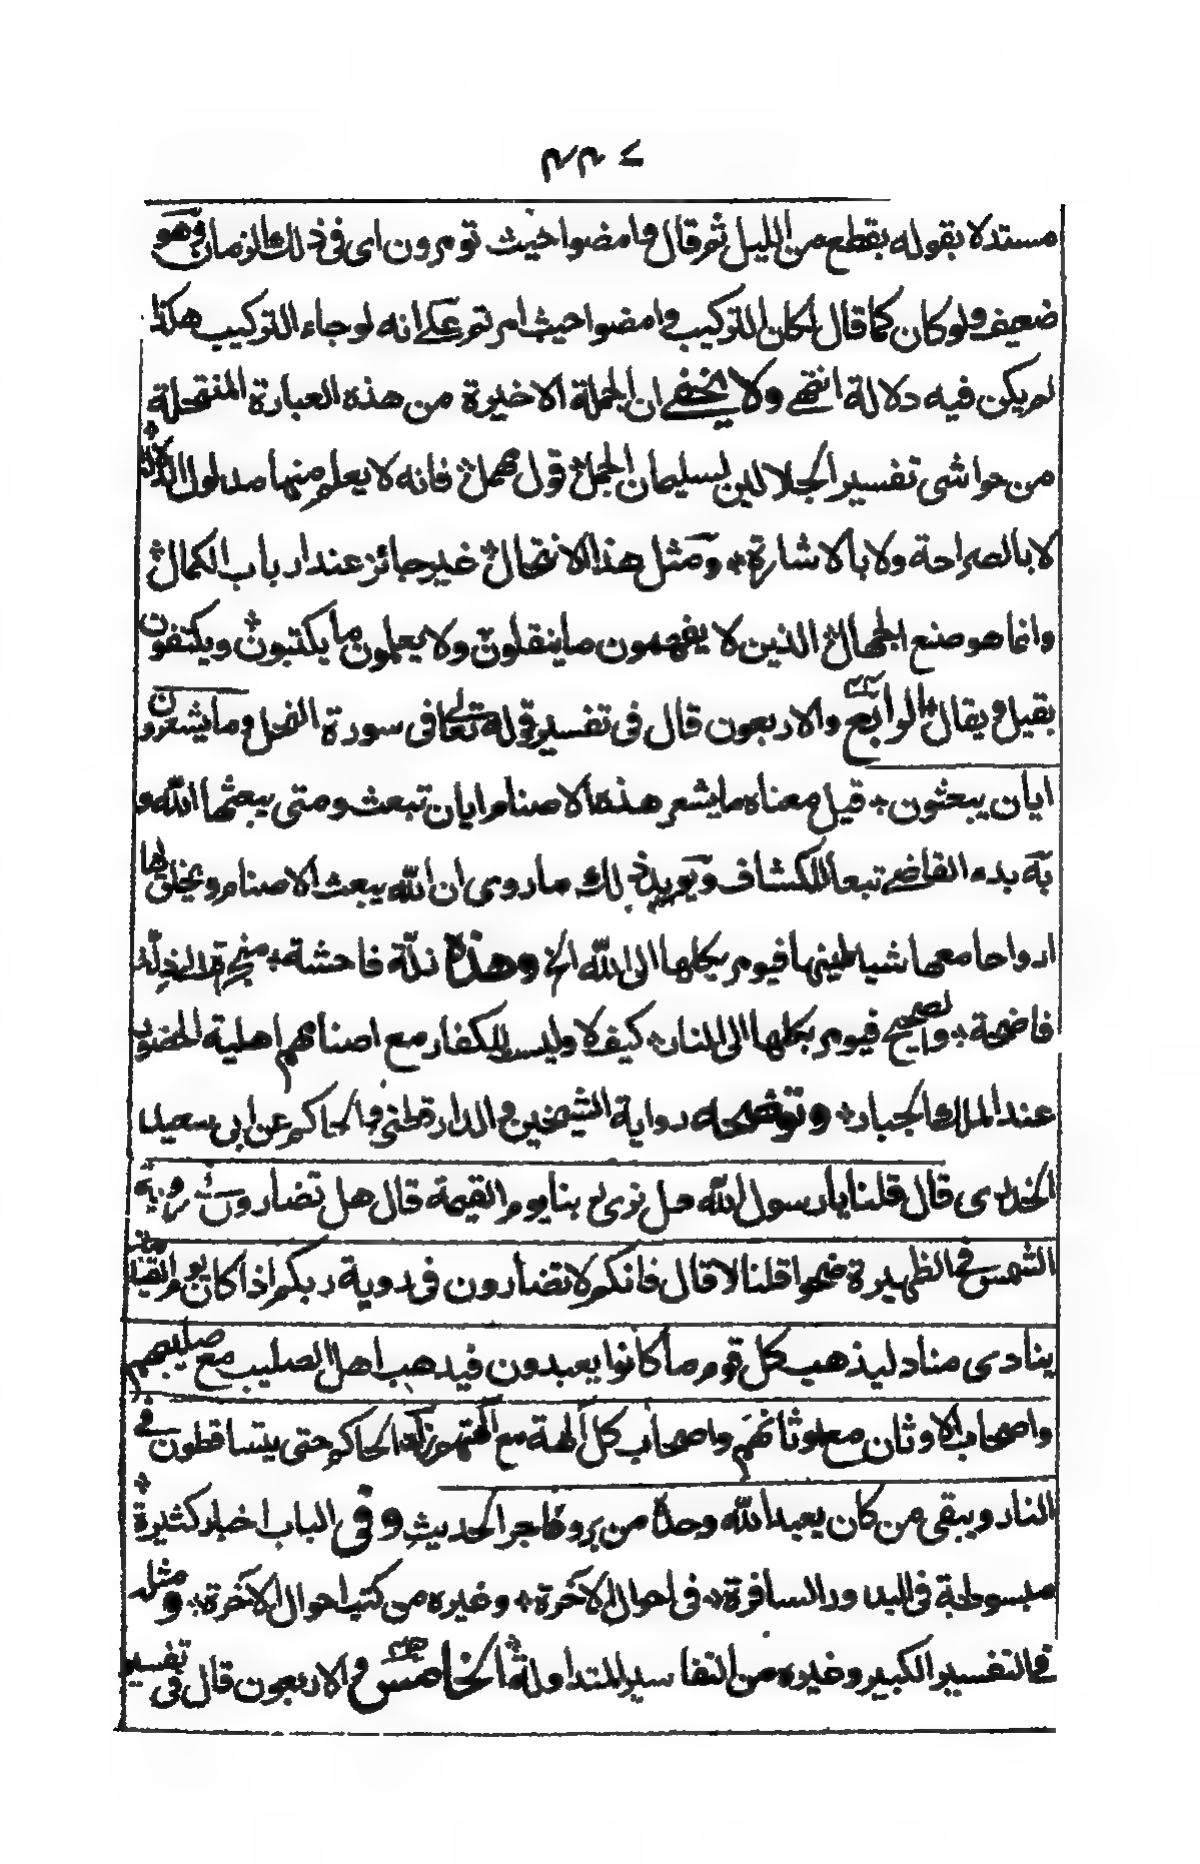 ٤٣٧
مستدلا بقوله بقطع من الليل ثم قال وامضوا حيث تومرون اى فى ذلك الزمان وهو
ضعيف ولو كان كما قال لكان التركيب وامضوا حيث امرتم على انه لو جاء التركيب هكذا
لم يكن فيه دلالة انتهى ولا يخفى ان الجملة الاخيرة من هذه العبارة المنتحلة
من حواشى تفسير الجلالين لسليمان الجمل قول مهمل فانه لا يعلم منها مدلول الدلالة
لا بالصراحة ولا بالاشارة ومثل هذا الانتحال غير جائز عند ارباب الكمال
وانما هو صنع الجهال الذين لا يفهمون ما ينقلون ولا يعلمون ما يكتبون ويكتفون
بقيل ويقال الرابع والاربعون قال فى تفسير قوله تعالى فى سورة النحل وما يشعرون
ايان يبعثون قيل معناه ما يشعر هذه الاصنام ايان تبعث ومتى يبعثها الله و
به بدء القاضى تبعا للكشاف ويؤيد ذلك ما روى ان الله يبعث الاصنام ويخلق لها
ارواحا معها شياطينها فيومر بكلها الى الله الخ وهذه زلة فاحشة
فاضحة والصحيح فيومر بكلها الى النار كيف لا وليس للكفار مع اصنامهم اهلية الحضور
عند الملك الجبار وتوضحه رواية الشيخين والدارقطنى والحاكم عن ابى سعيد
الخدرى قال قلنا يا رسول الله هل نرى ربنا يوم القيمة قال هل تضارون فى روية
الشمس فى الظهيرة صحوا قلنا لا قال فانكم لا تضارون فى روية ربكم اذا كان يوم القيامة
ينادى مناد ليذهب كل قوم ما كانوا يعبدون فيذهب اهل الصليب مع صليبهم
واصحاب الاوثان مع اوثانهم واصحاب كل آلهة مع الهتهم زاد الحاكم حتى يتساقطون فى
النار ويبقى من كان يعبد الله وحده من بر وفاجر الحديث وفى الباب اخبار كثيرة
مبسوطة فى البدور السافرة فى احوال الآخرة وغيره من كتب احوال الآخرة ومثله
فى التفسير الكبير وغيره من التفاسير المتداولة الخامس والاربعون قال فى تفسير